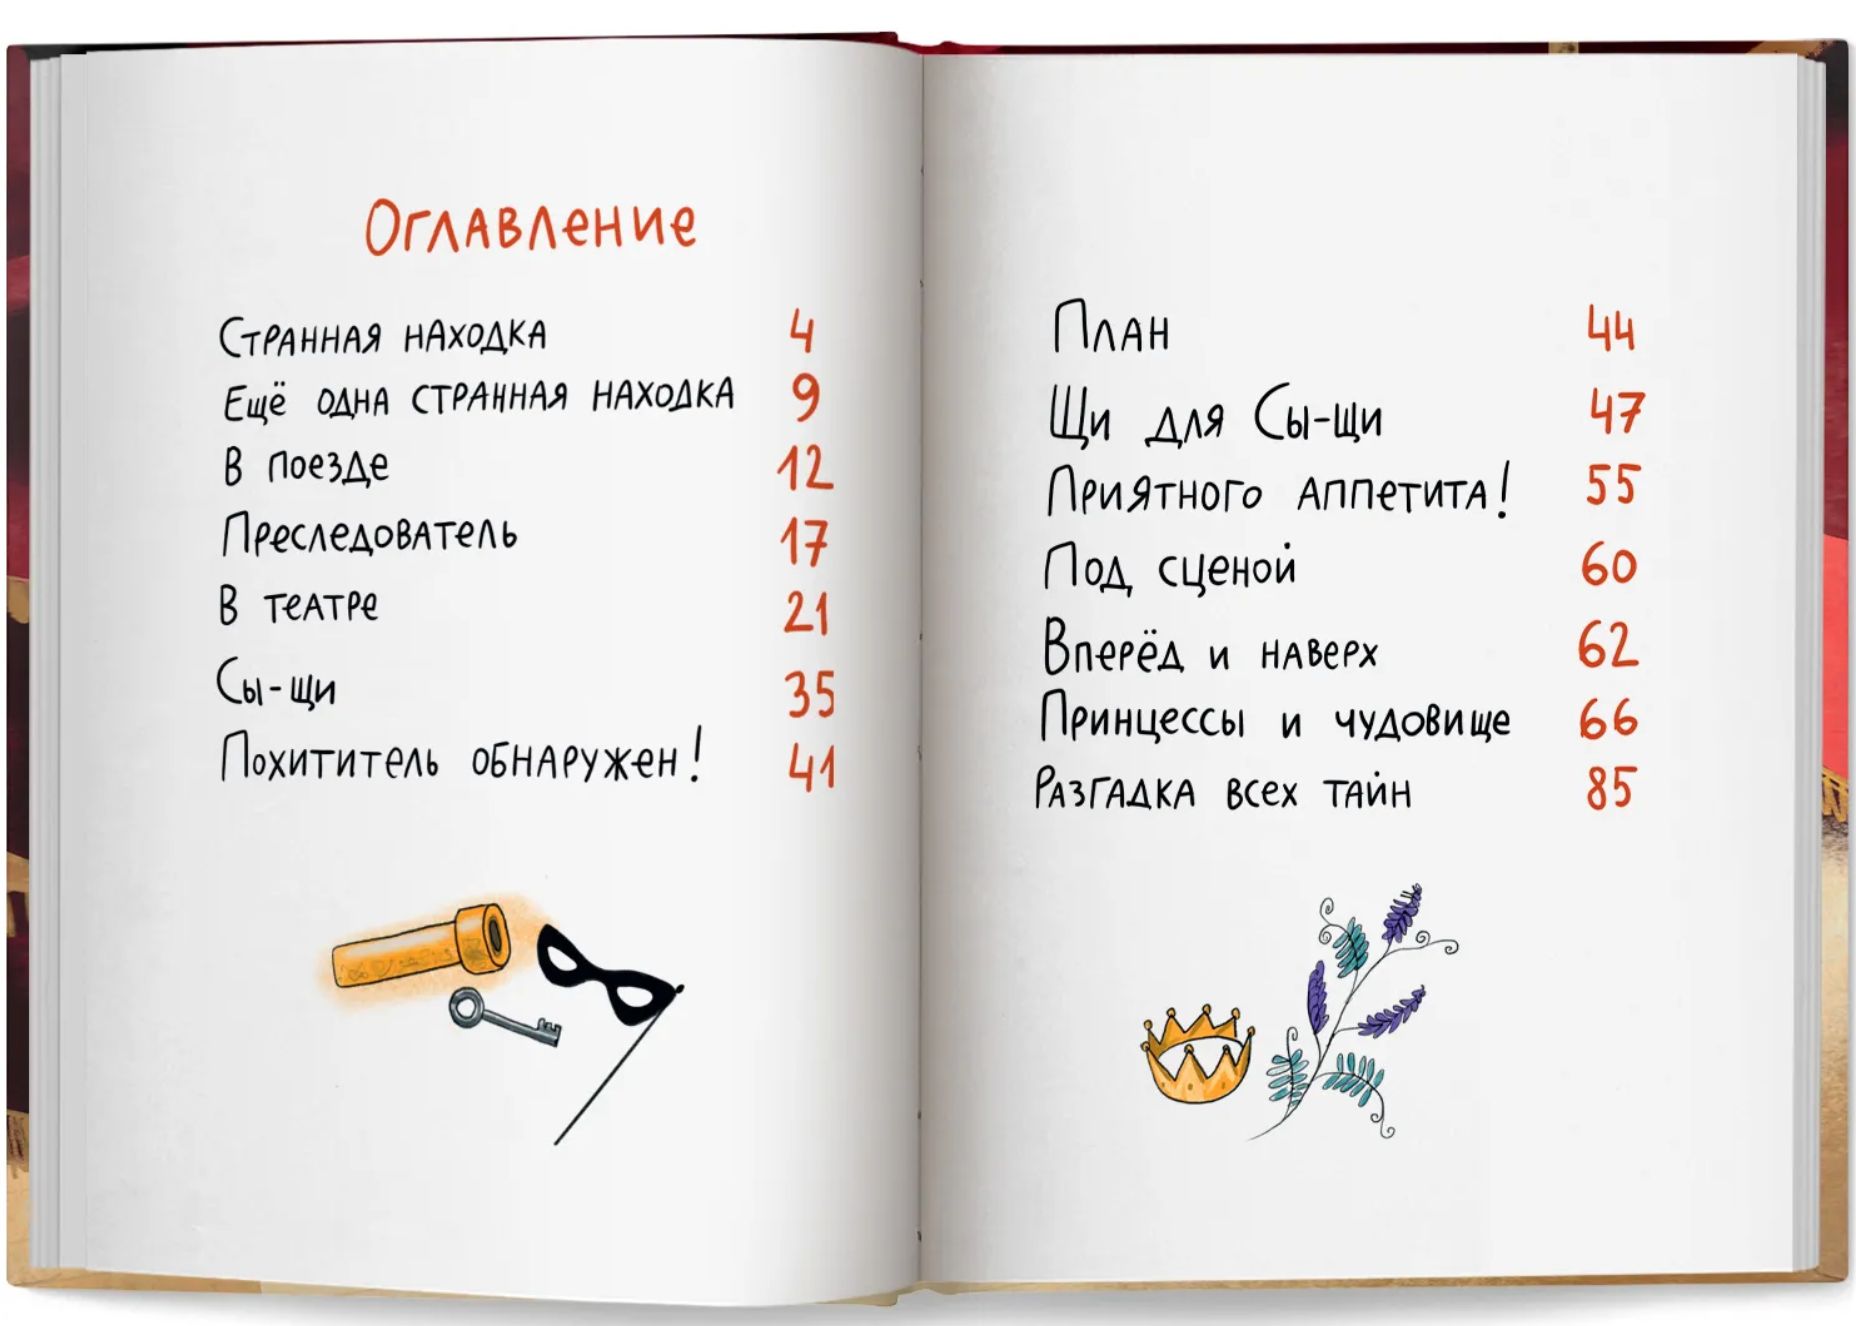 Оглавление
Странная находка 4
Ещё одна странная находка 9
В поезде 12
Преследователь 17
В театре 21
Сы-щи 35
Похититель обнаружен! 41
План 44
Щи для Сы-щи 47
Приятного аппетита! 55
Под сценой 60
Вперёд и наверх 62
Принцессы и чудовище 66
Разгадка всех тайн 85